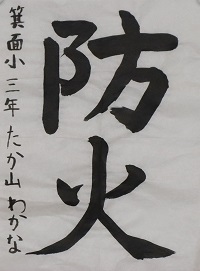 防火
箕面小三年たか山わかな